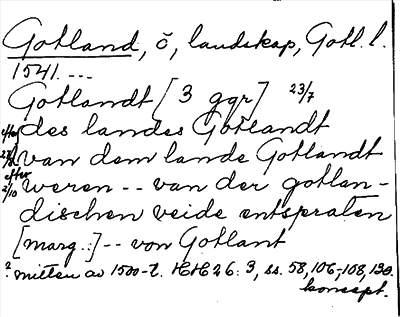 Gotland, ö, landskap, Gotl. l.
1541. ---
Gotlandt [3 ggr] 23/7
efter des landes Gotlandt
van dem lande Gotlandt
efter 2/10 weren -- van der gotlan-
dischen veide entspraten
[marg.:] -- von Gotlant
? mitten av 1500-t. HH 26:3, ss. 58, 106-108, 130.
koncept.